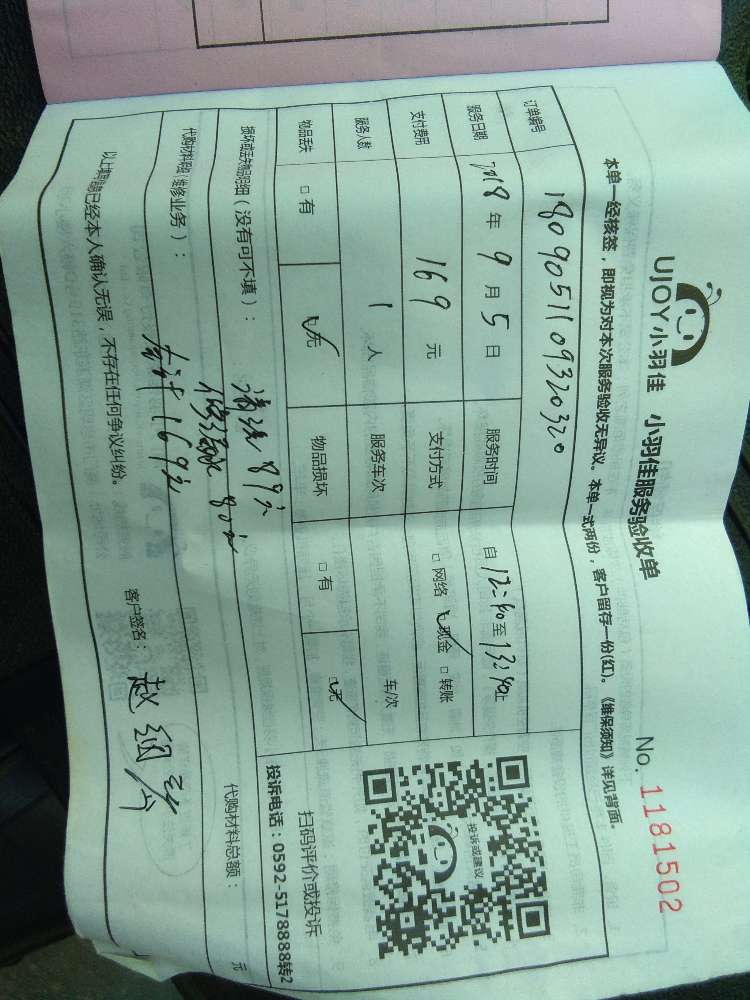 UJOY小羽佳 小羽佳服务验收单
No. 1181502
本单一经核签，即视为对本次服务验收无异议。本单一式两份，客户留存一份(红)。《维保须知》详见背面。
订单编号 1809051109320320
服务日期 2018 年 9 月 5 日 服务时间 自 12:40 至 13:40 止
支付费用 169 元 支付方式 □ 网络 ☑ 现金 □ 转账
服务人数 1 人 服务车次 车/次
物品丢失 □ 有 ☑ 无 物品损坏 □ 有 ☑ 无
投诉或建议
扫码评价或投诉
投诉电话：0592-5178888转2
损坏或丢失物品明细（没有可不填）：
清洗89元
80元
代购材料明细（维修业务）： 代购材料总额： 元
合计169元
以上事项已经本人确认无误，不存在任何争议纠纷。
客户签名： 赵